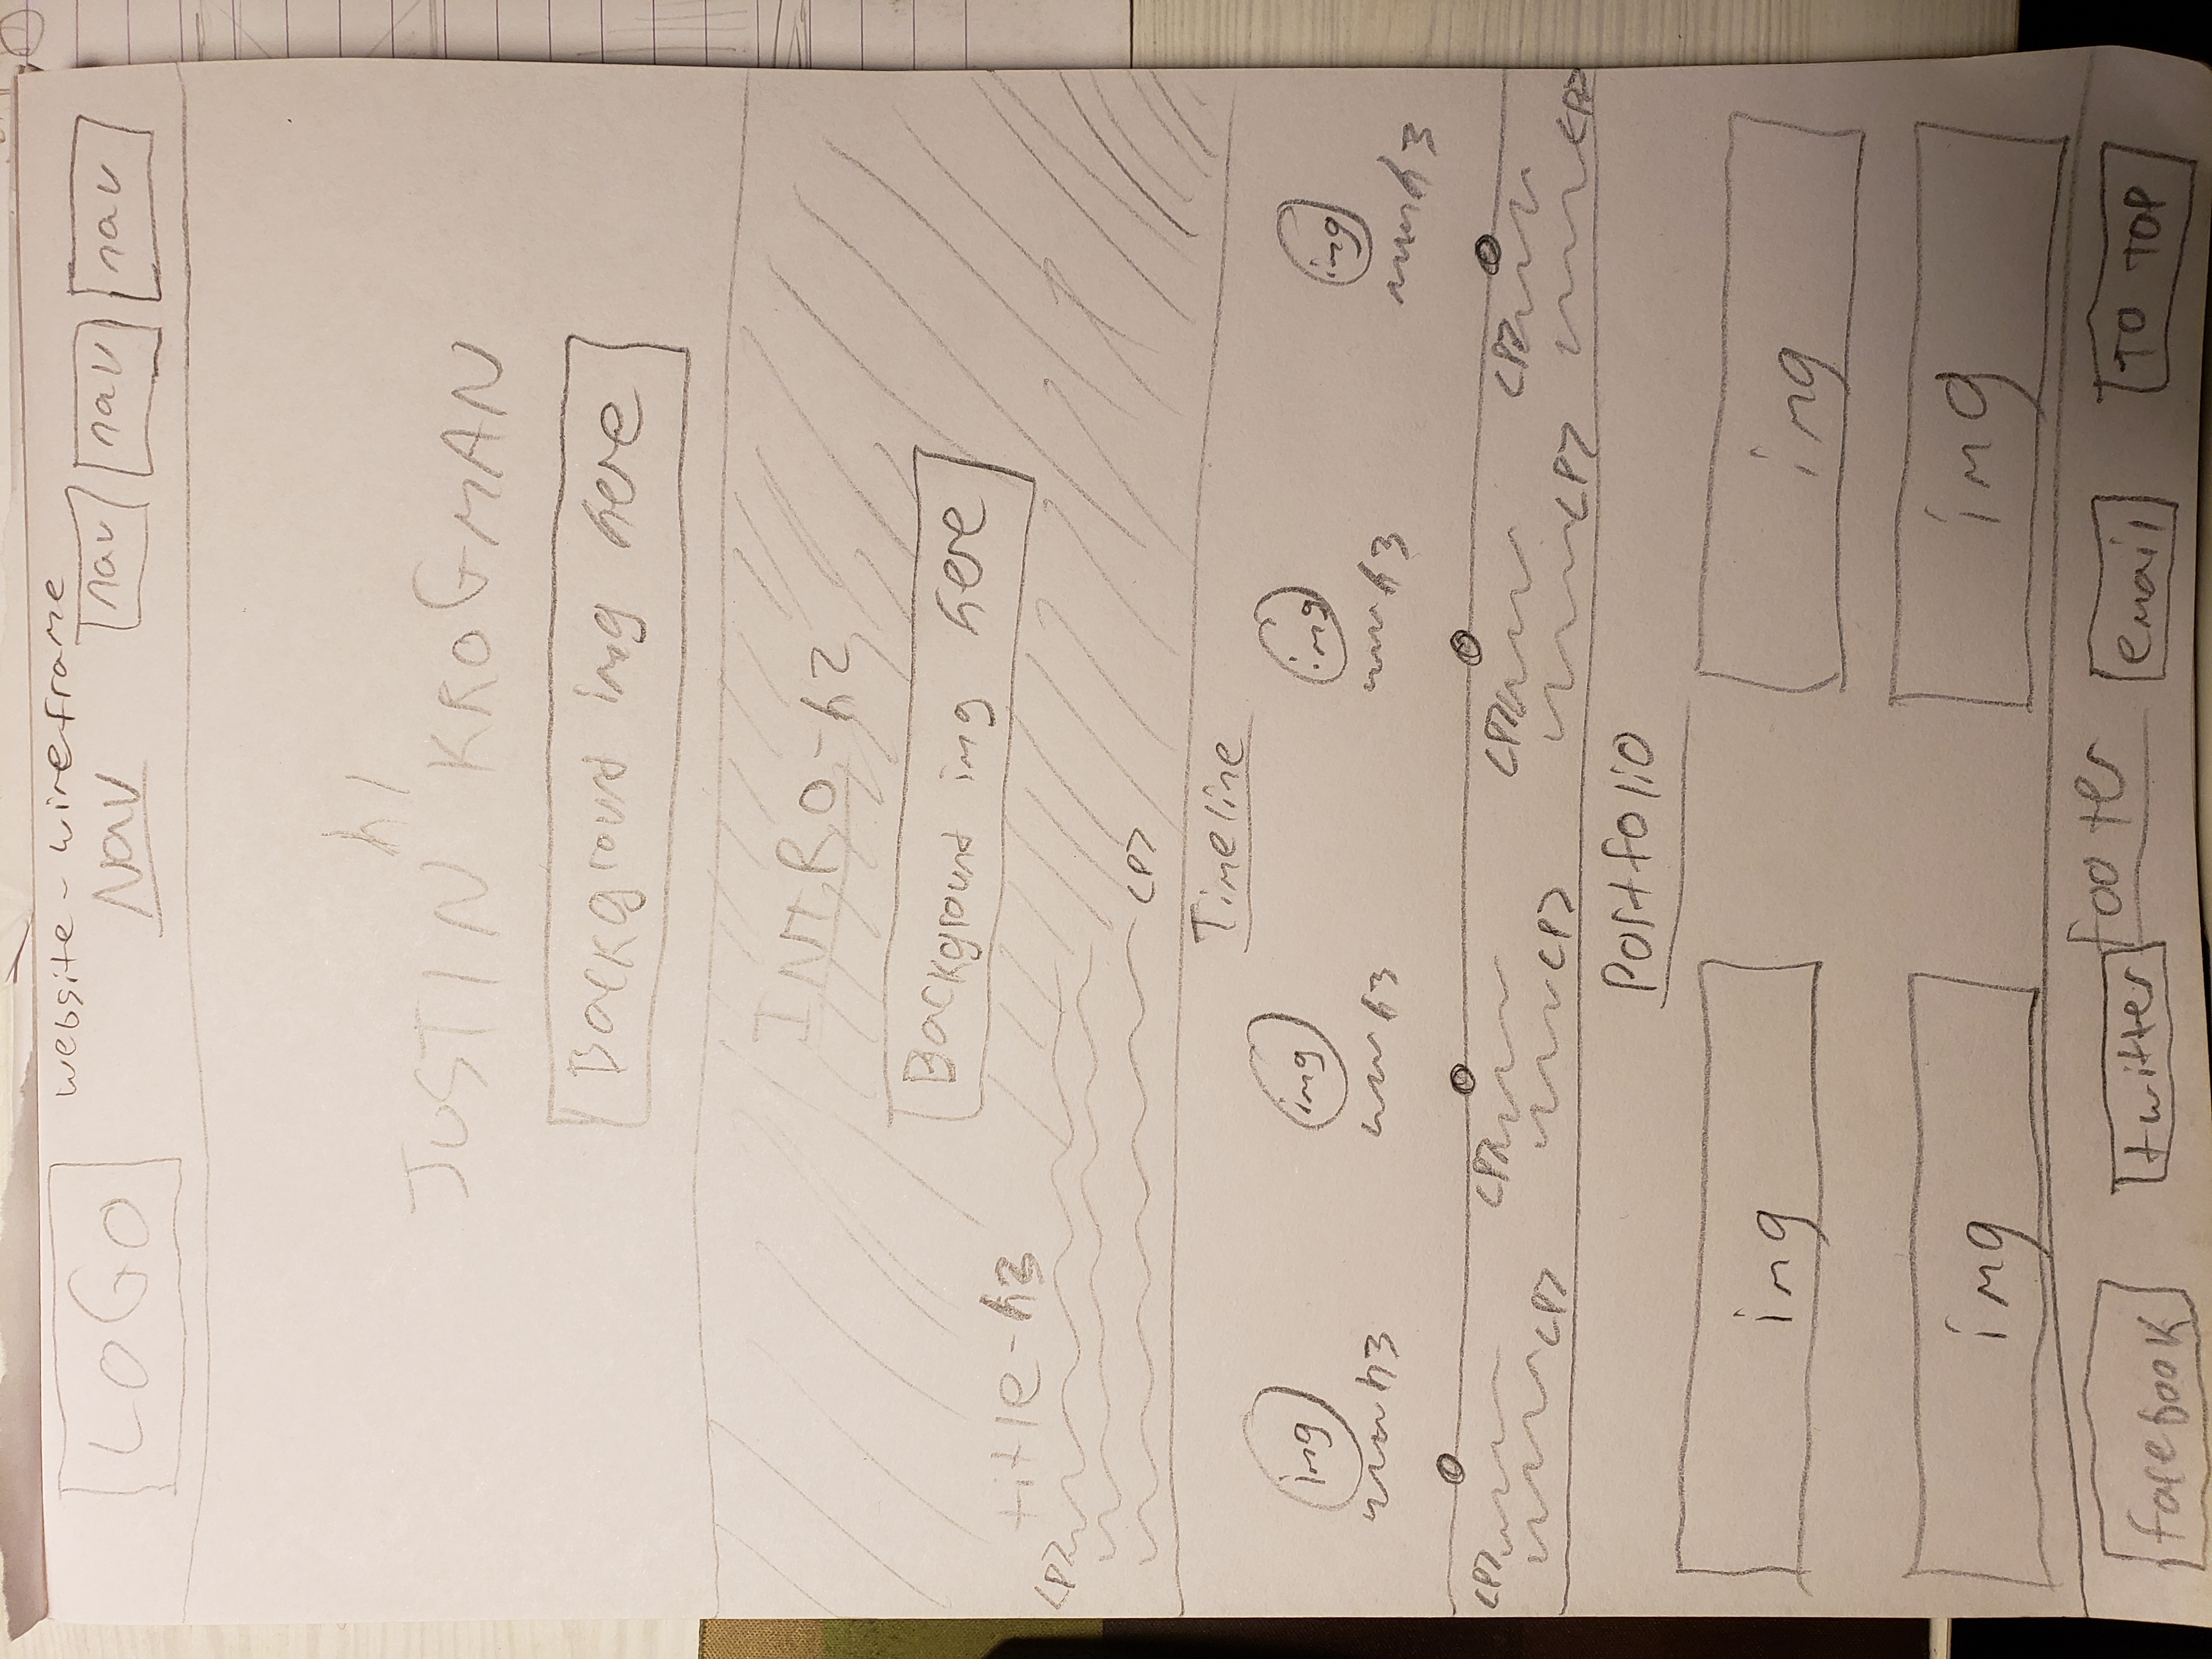 website - wireframe
LOGO
Nav
nav nav nav
h1
JUSTIN KROGMAN
Background img here
INTRO-h2
Background img here
title-h3
<P>
<P>
Timeline
img img img img
h3 h3 h3 h3
<P> <P> <P> <P>
<P> <P> <P> <P>
Portfolio
img img
img img
footer
facebook twitter email TO TOP